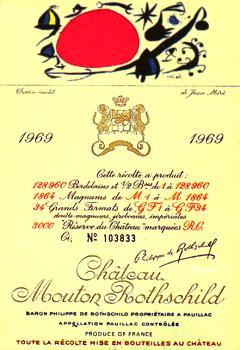 Dessin inédit de Joan Miró
1969 1969
Cette récolte a produit:
128960 Bordelaises et 1/2 Btes de 1 à 128960
1864 Magnums de M 1 à M 1864
34 Grands Formats de GF1 à GF34
double magnums, jéroboams, impériales
3000 "Réserve du Château" marquées R.C.
Ci, Nº 103833
Philippe de Rothschild
Château
Mouton Rothschild
BARON PHILIPPE DE ROTHSCHILD PROPRIÉTAIRE A PAUILLAC
APPELLATION PAUILLAC CONTRÔLÉE
PRODUCE OF FRANCE
TOUTE LA RÉCOLTE MISE EN BOUTEILLES AU CHÂTEAU